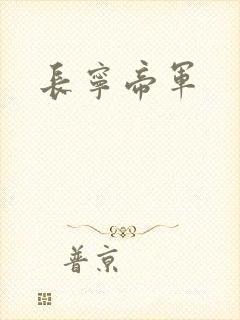 長寧帝軍
普京